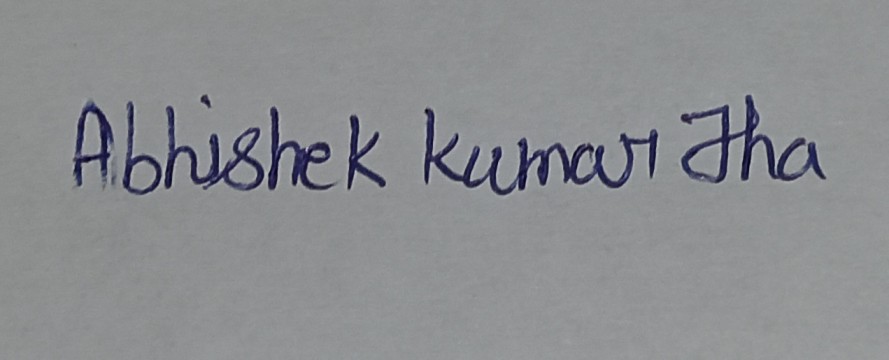 Abhishek Kumar Jha